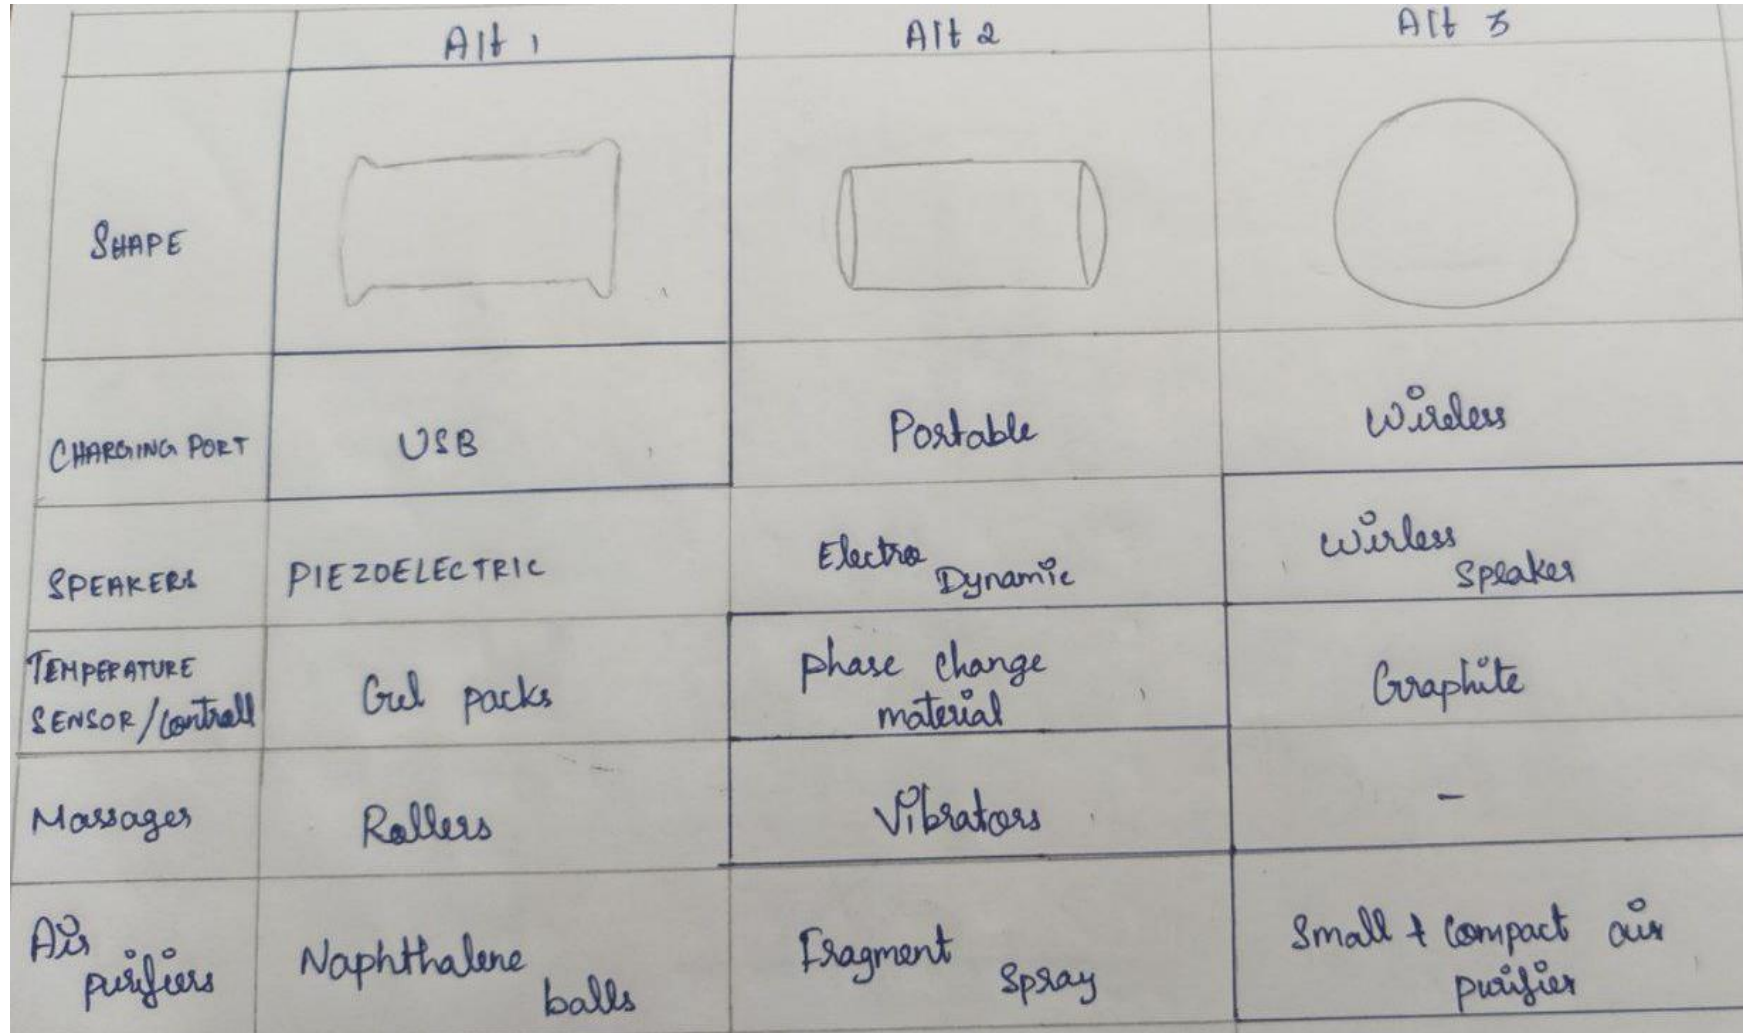 Alt 1 Alt 2 Alt 3
SHAPE
CHARGING PORT USB Portable Wireless
SPEAKERS PIEZOELECTRIC Electro Dynamic Wirless Speaker
TEMPERATURE
SENSOR/Controll Gel packs phase change material Graphite
Massager Rollers Vibrators -
Air purifiers Naphthalene balls Fragment Spray Small + Compact air purifier